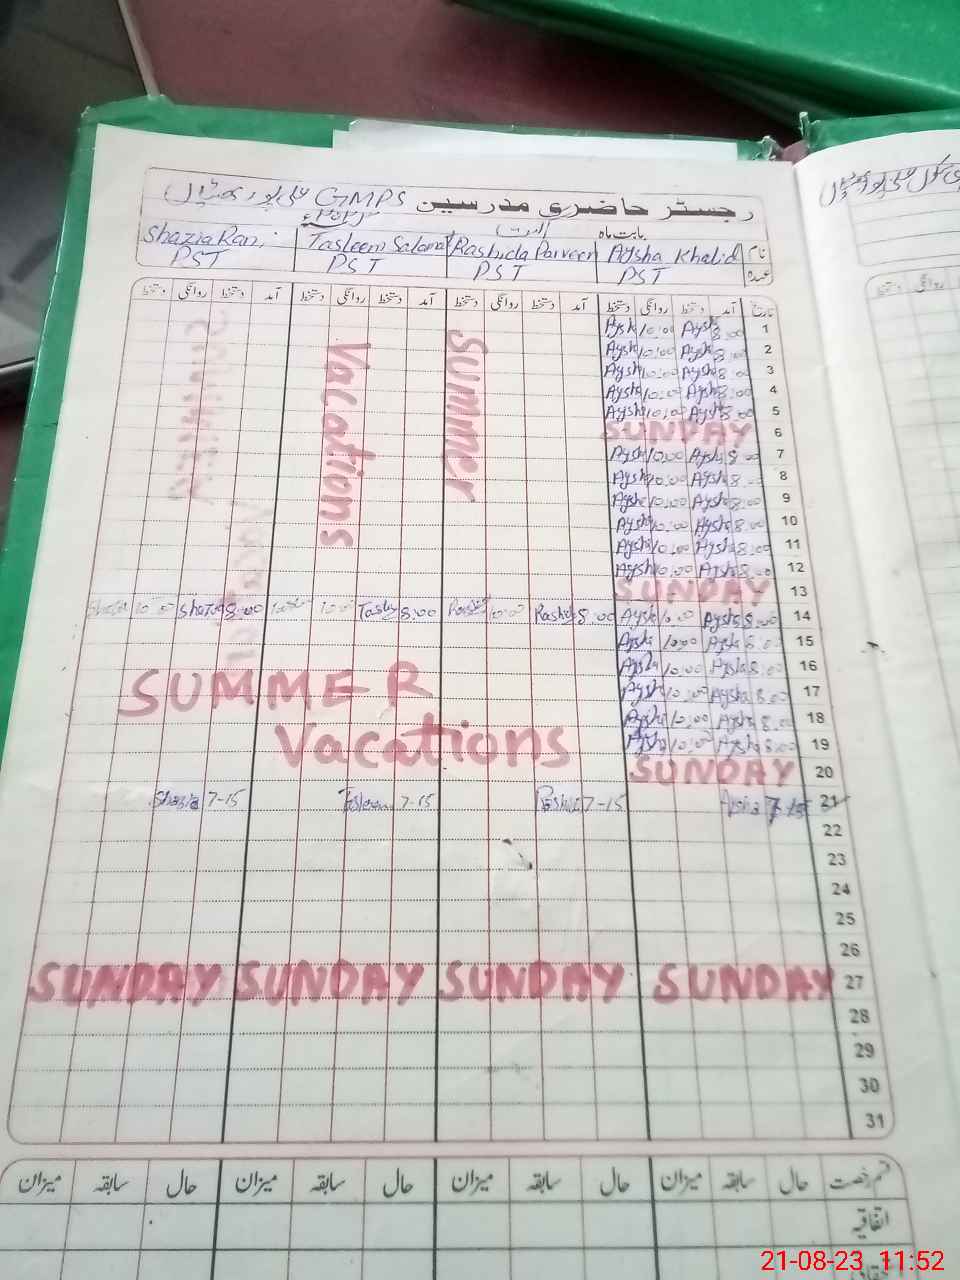 رجسٹر حاضری مدرسین GMPS علی پور
بابت ماہ
نام Aysha Khalid Rashida Parveen Tasleem Salamat Shazia Rani
عہدہ PST PST PST PST
تاریخ آمد دستخط روانگی دستخط آمد دستخط روانگی دستخط آمد دستخط روانگی دستخط آمد دستخط روانگی دستخط
Summer
Vacations
1 8:00 Aysh 10:00 Aysh
2 8:00 Aysh 10:00 Aysh
3 8:00 Aysha 10:00 Aysh
4 8:00 Aysha 10:00 Aysh
5 8:00 Aysh 10:00 Aysh
6 SUNDAY
7 8:00 Aysh 10:00 Aysh
8 8:00 Aysh 10:00 Aysh
9 8:00 Aysha 10:00 Aysh
10 8:00 Aysha 10:00 Aysh
11 8:00 Aysha 10:00 Aysh
12 8:00 Aysh 10:00 Aysh
13 SUNDAY
14 8:00 Aysha 10:00 Aysh 8:00 Rashid 10:00 8:00 Tasle 10:00 8:00 Shazia 10:00 Shazia
15 Aysha 10:00 Aysha
16 8:00 Aysha 10:00 Aysha
17 8:00 Aysha 10:00 Aysh
18 8:00 Aysha 10:00 Aysh
19 8:00 Aysha 10:00 Aysha
SUMMER
Vacations
20 SUNDAY
21 7-15 Aysha 7-15 7-15 Tasleem 7-15 Shazia
22
23
24
25
26
27 SUNDAY SUNDAY SUNDAY SUNDAY
28
29
30
31
قسم رخصت حال سابقہ میزان حال سابقہ میزان حال سابقہ میزان حال سابقہ میزان
اتفاقیہ
21-08-23 11:52